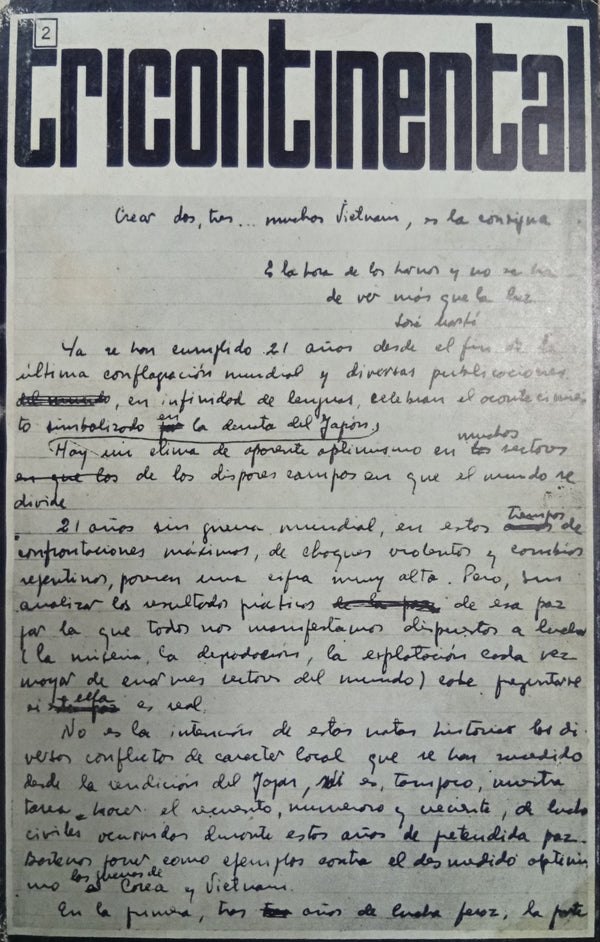 2
tricontinental
Crear dos, tres... muchos Vietnam, es la consigna
Es la hora de los hornos y no se ha
de ver más que la luz
José Martí
Ya se han cumplido 21 años desde el fin de la
última conflagración mundial y diversas publicaciones
del mundo, en infinidad de lenguas, celebran el acontecimien
to simbolizado en la derrota del Japón.
Hay un clima de aparente optimismo en muchos sectores
en que los de los dispares campos en que el mundo se
divide
21 años sin guerra mundial, en estos tiempos de
confrontaciones máximas, de choques violentos y cambios
repentinos, parecen una cifra muy alta. Pero, sin
analizar los resultados prácticos de la paz de esa paz
por la que todos nos manifestamos dispuestos a luchar
(la miseria, la degradación, la explotación cada vez
mayor de enormes sectores del mundo) cabe preguntarse
si ella es real.
No es la intención de estas notas historiar los di
versos conflictos de carácter local que se han sucedido
desde la rendición del Japón, no es, tampoco, nuestra
tarea hacer el recuento, numeroso y creciente, de luchas
civiles ocurridas durante estos años de pretendida paz.
Bástenos poner como ejemplos contra el desmedido optimis
mo las guerras de Corea y Vietnam.
En la primera, tras años de lucha feroz, la parte